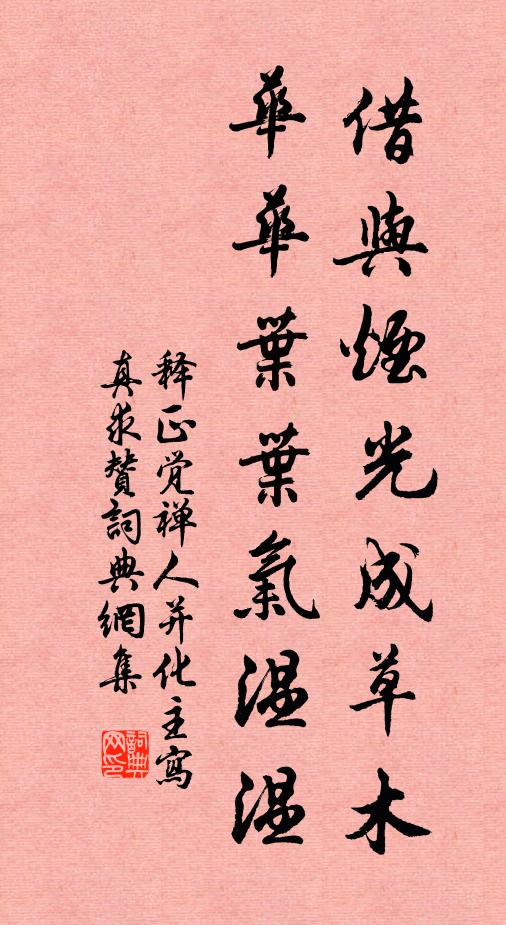 借與煙光成草木
華華葉葉氣溫溫
释正觉禅人并化主寫
真求贊詞典網集
詞典网印